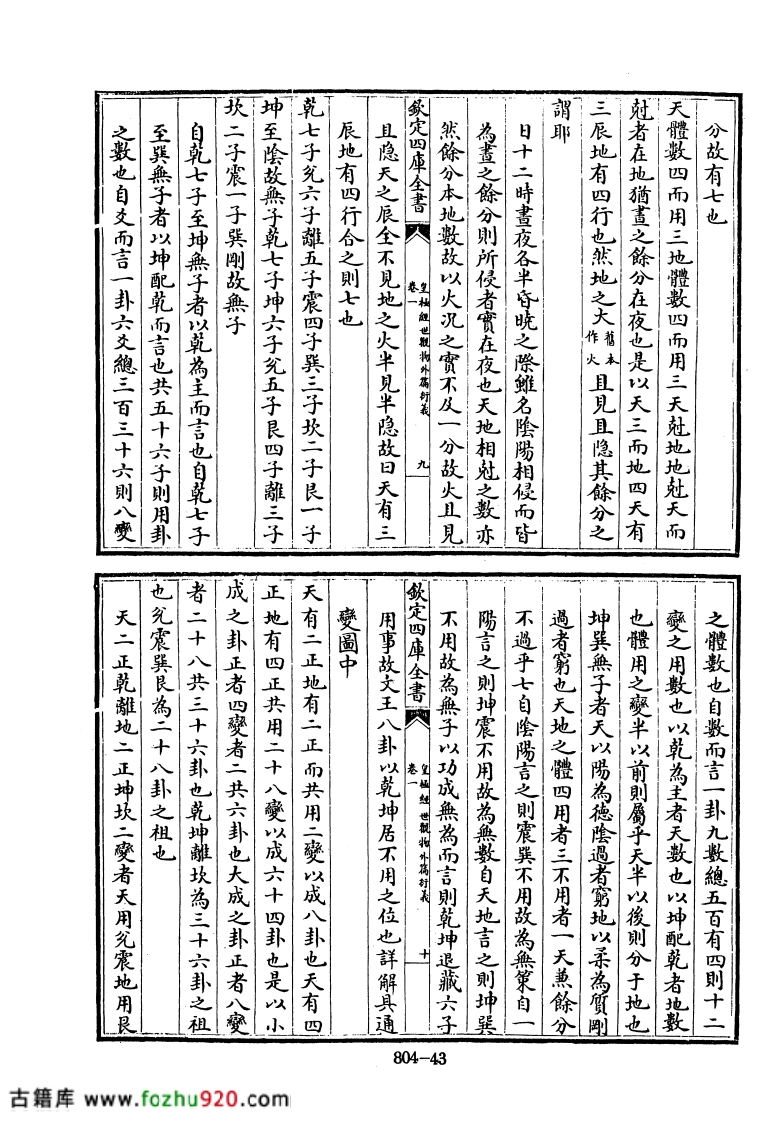 分故有七也
天體數四而用三地體數四而用三天尅地地尅天而
尅者在地猶晝之餘分在夜也是以天三而地四天有
三辰地有四行也然地之大舊本作火且見且隐其餘分之
謂耶
日十二時晝夜各半昏曉之際雖名陰陽相侵而皆
為晝之餘分則所侵者實在夜也天地相尅之數亦
然餘分本地數故以火况之實不及一分故火且見
欽定四庫全書
皇極經世觀物外篇衍義
卷一
九
且隐天之辰全不見地之火半見半隐故曰天有三
辰地有四行合之則七也
乾七子兊六子離五子震四子巽三子坎二子艮一子
坤至陰故無子乾七子坤六子兊五子艮四子離三子
坎二子震一子巽剛故無子
自乾七子至坤無子者以乾為主而言也自乾七子
至巽無子者以坤配乾而言也共五十六子則用卦
之數也自爻而言一卦六爻總三百三十六則八變
之體數也自數而言一卦九數總五百有四則十二
變之用數也以乾為主者天數也以坤配乾者地數
也體用之變半以前則屬乎天半以後則分于地也
坤巽無子者天以陽為德陰過者窮地以柔為質剛
過者窮也天地之體四用者三不用者一天兼餘分
不過乎七自陰陽言之則震巽不用故為無策自一
陽言之則坤震不用故為無數自天地言之則坤巽
不用故為無子以功成無為而言則乾坤退藏六子
欽定四庫全書
皇極經世觀物外篇衍義
卷一
十
用事故文王八卦以乾坤居不用之位也詳解具通
變圖中
天有二正地有二正而共用二變以成八卦也天有四
正地有四正共用二十八變以成六十四卦也是以小
成之卦正者四變者二共六卦也大成之卦正者八變
者二十八共三十六卦也乾坤離坎為三十六卦之祖
也兊震巽艮為二十八卦之祖也
天二正乾離地二正坤坎二變者天用兊震地用艮
804-43
古籍库 www.fozhu920.com